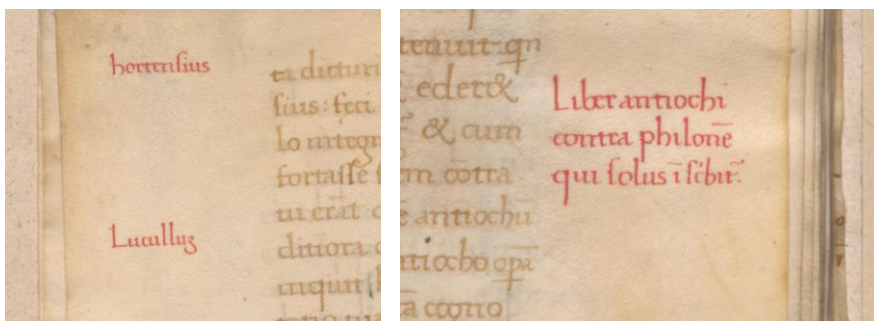 hortensius
ta dicturi
sius: feci
lo integr
fortasse
tu erāt
Lucullus
ditiora
inquit
tenuit qn
edet&
& cum
m cōtra
antiochū
tiocho opa
a cogno
Liber antiochi
contra philonē
qui solus ī scbit̄.